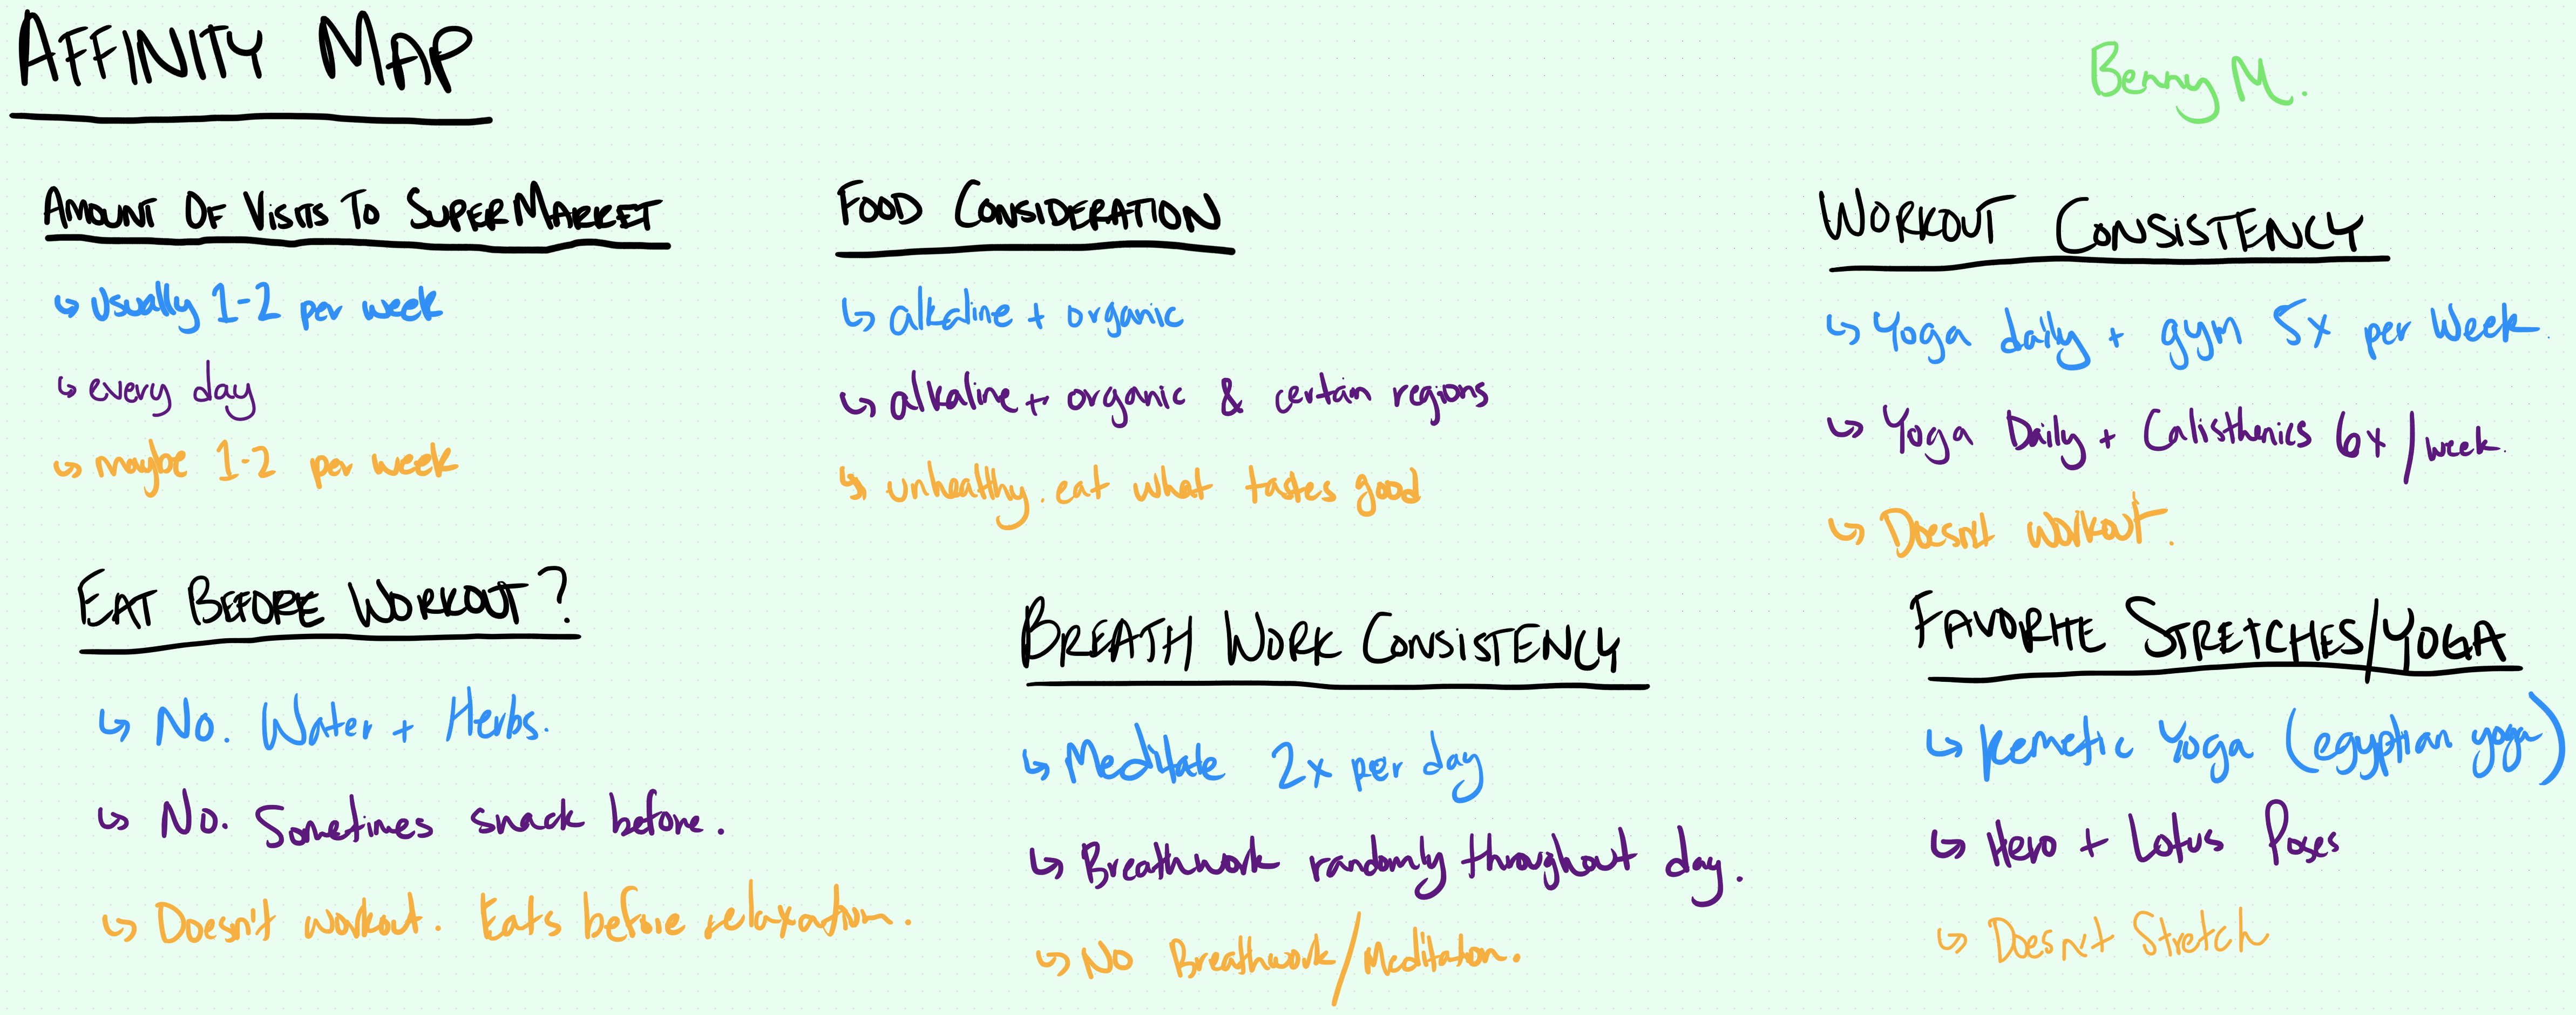 AFFINITY MAP
Benny M.
AMOUNT OF VISITS TO SUPERMARKET
↳ Usually 1-2 per week
↳ every day
↳ maybe 1-2 per week
FOOD CONSIDERATION
↳ alkaline + organic
↳ alkaline + organic & certain regions
↳ unhealthy. eat what tastes good
WORKOUT CONSISTENCY
↳ Yoga daily + gym 5x per Week.
↳ Yoga Daily + Calisthenics 6x/week.
↳ Doesn't workout.
EAT BEFORE WORKOUT?
↳ No. Water + Herbs.
↳ No. Sometimes snack before.
↳ Doesn't workout. Eats before relaxation.
BREATH WORK CONSISTENCY
↳ Meditate 2x per day
↳ Breathwork randomly throughout day.
↳ No Breathwork/Meditation.
FAVORITE STRETCHES/YOGA
↳ Kemetic Yoga (egyptian yoga)
↳ Hero + Lotus Poses
↳ Doesn't Stretch